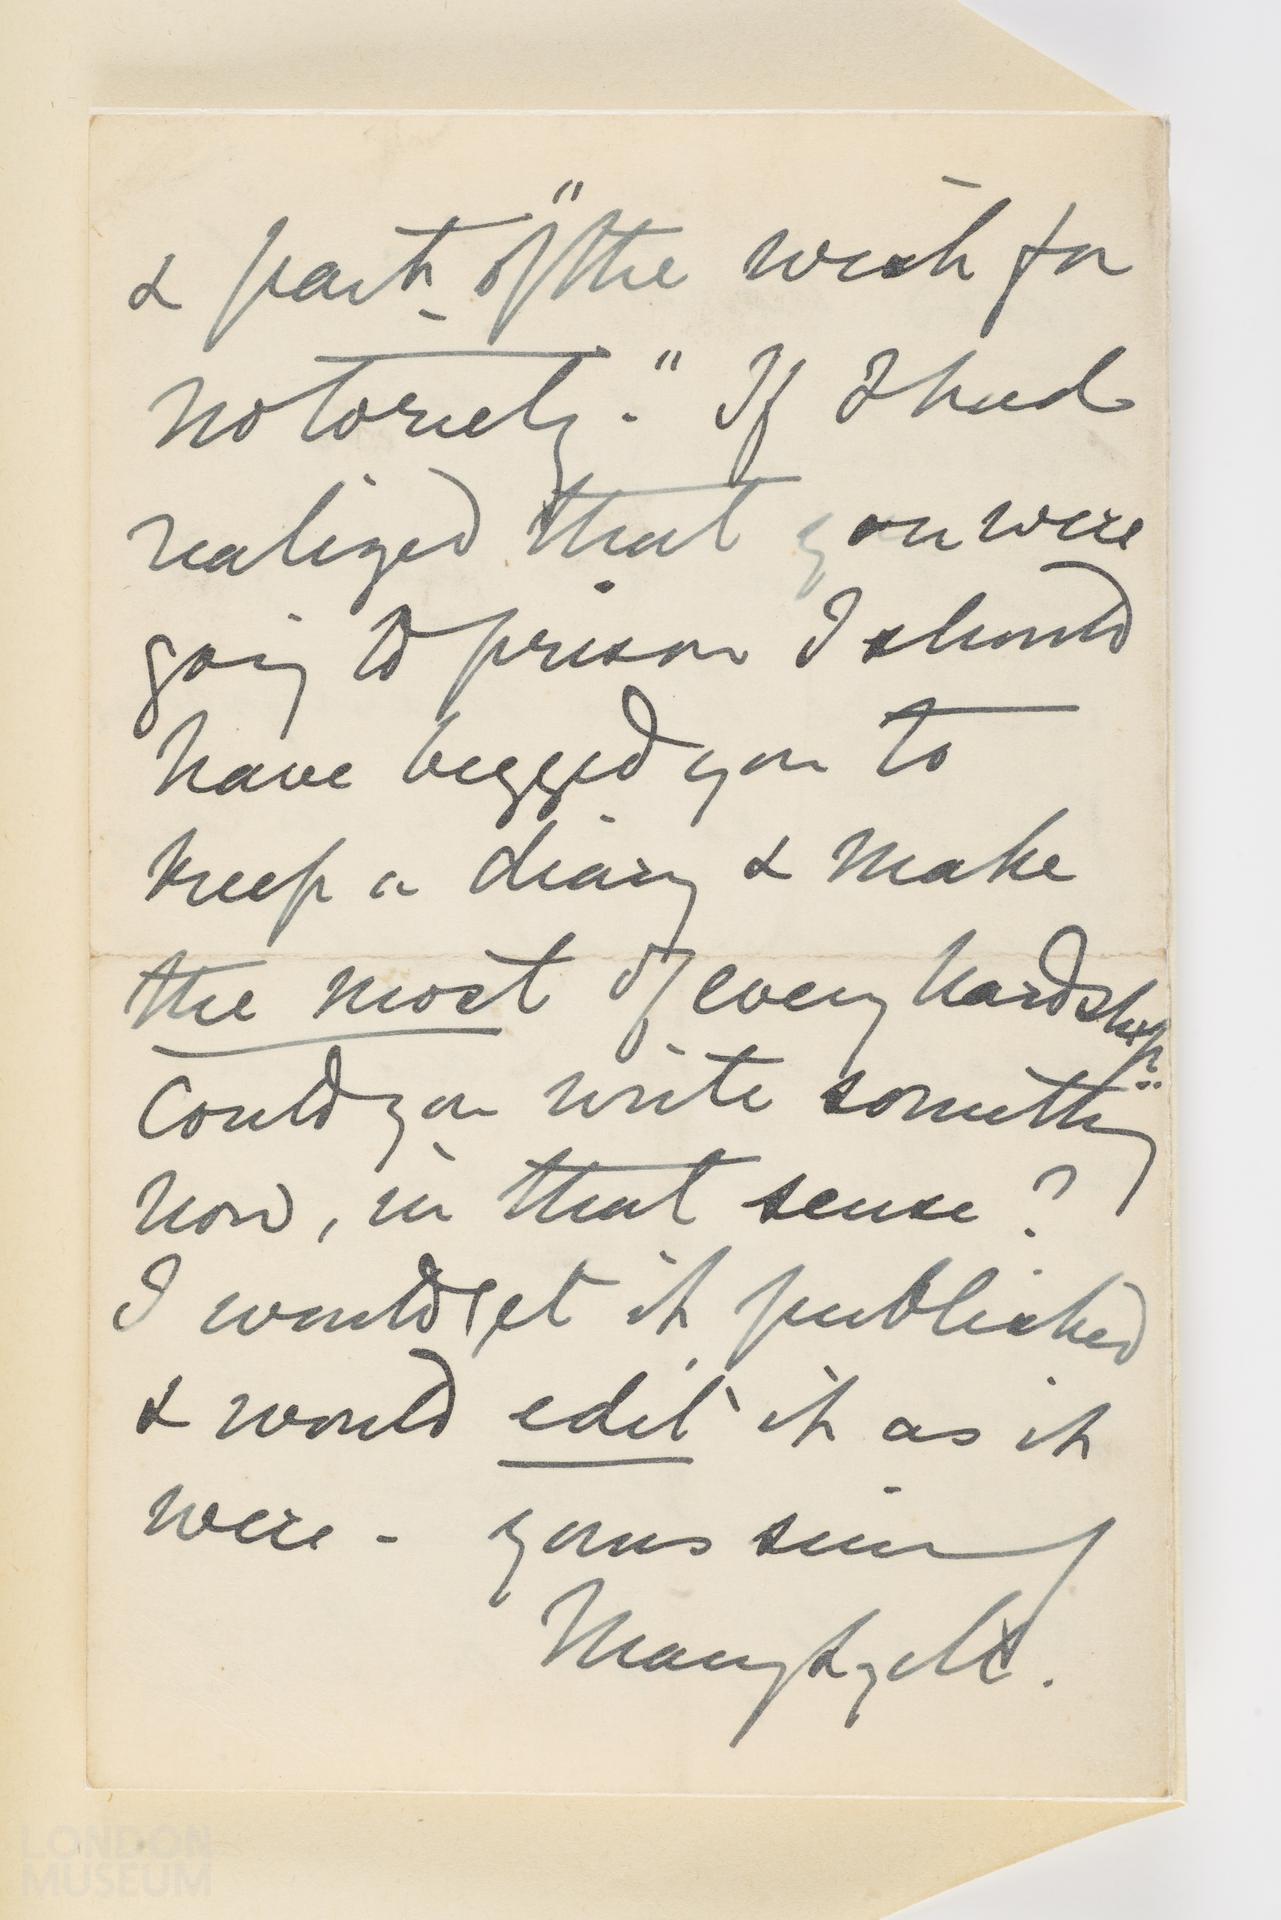 & part of "the wish for
notoriety." If I had
realized that you were
going to prison I should
have begged you to
keep a diary & make
the most of every hardship
Could you write something
now, in that sense?
I would get it published
& would edit it as it
were - yours sincy
Mary
LONDON
MUSEUM